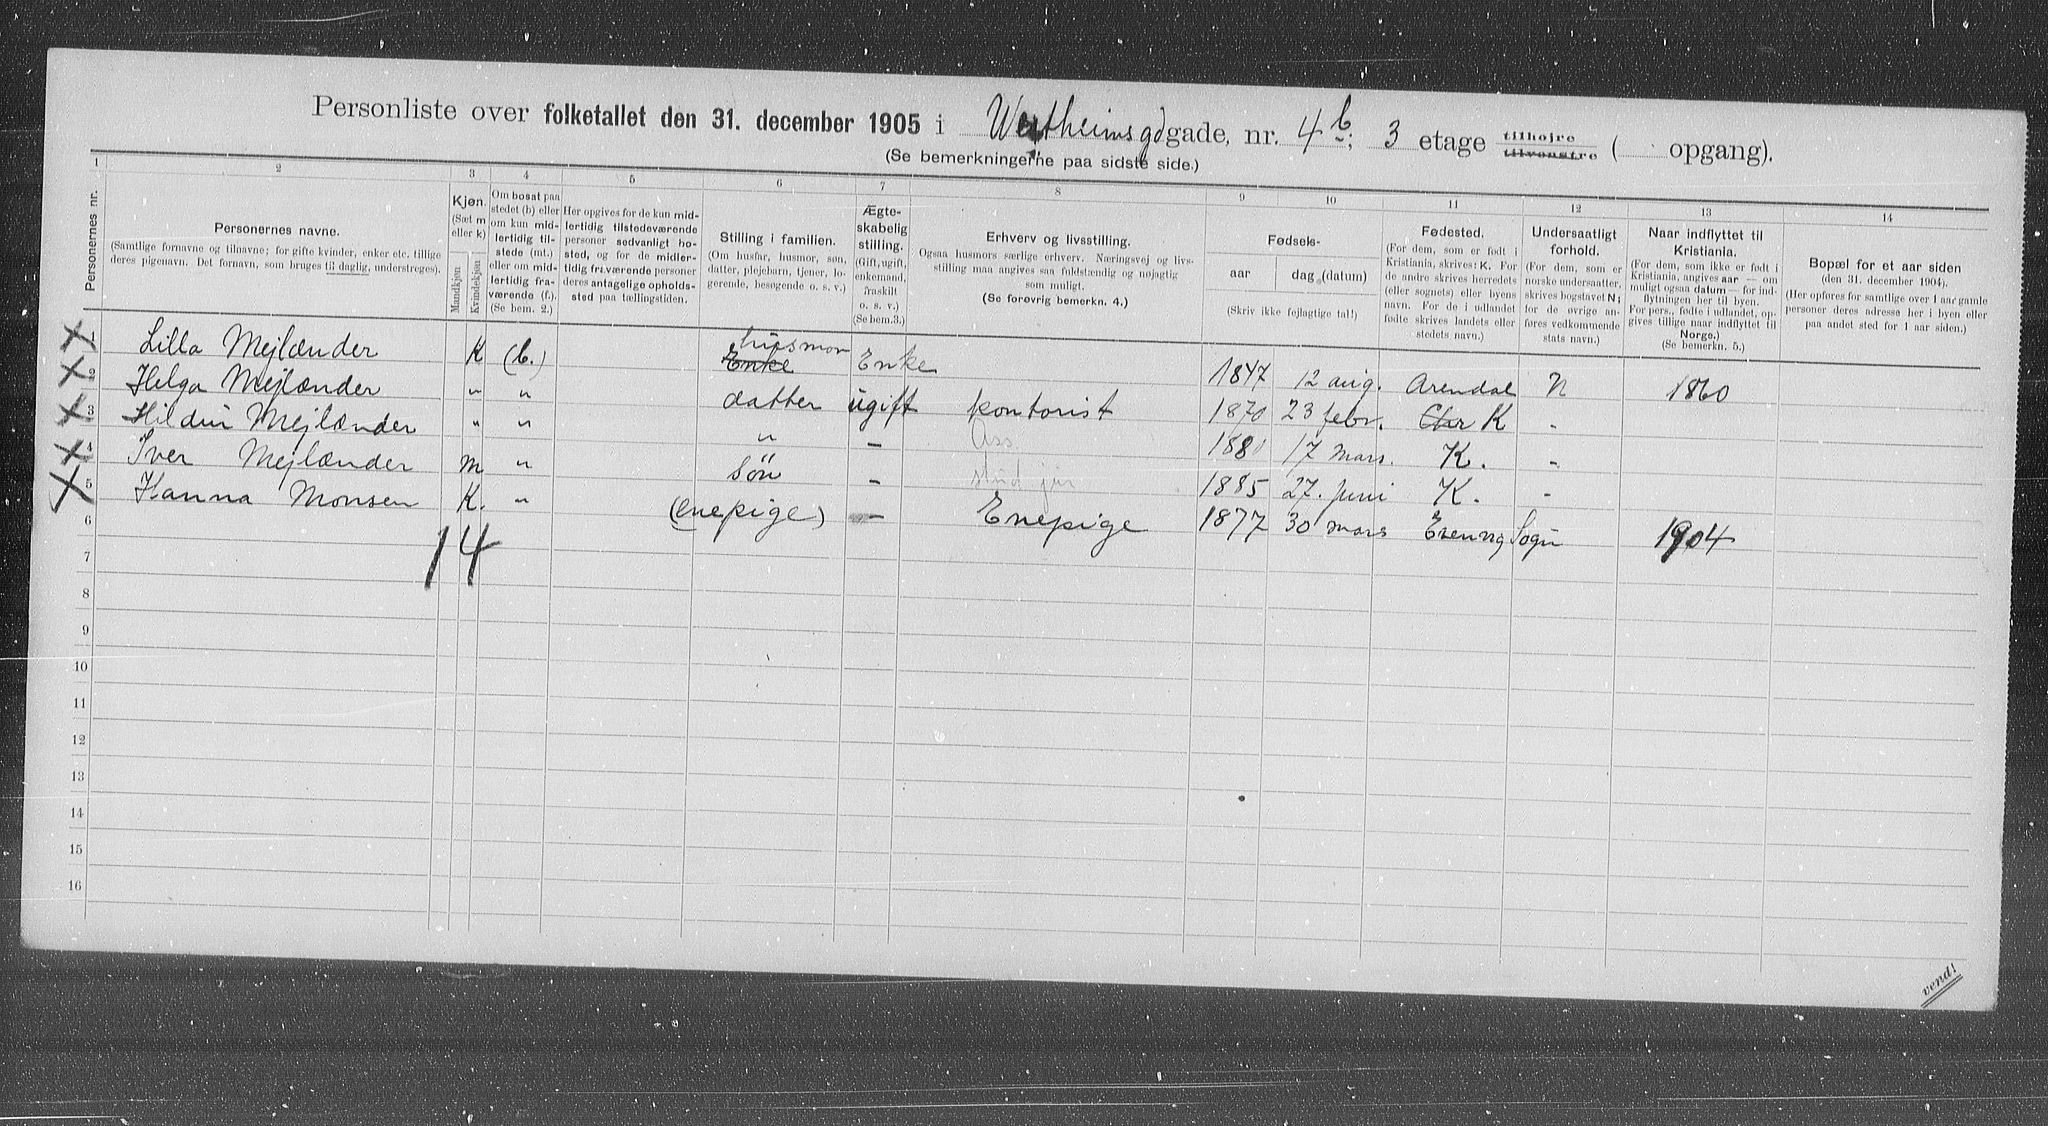 Personliste over folketallet den 31. december 1905 i Wertheimsgdgade, nr. 4b; 3 etage tilhøjre tilvenstre ( opgang).
(Se bemerkningerne paa sidste side.)
1 2 3 4 5 6 7 8 9 10 11 12 13 14
Personernes nr.
Personernes navne.
(Samtlige fornavne og tilnavne; for gifte kvinder, enker etc. tillige
deres pigenavn. Det fornavn, som bruges til daglig, understreges).
Kjøn.
(Sæt m
eller k)
Mandkjøn
Kvindekjøn
Om bosat paa
stedet (b) eller
om kun mid-
lertidig til-
stede (mt.)
eller om mid-
lertidig fra-
værende (f.).
(Se bem. 2.)
Her opgives for de kun mid-
lertidig tilstedeværende
personer sedvanligt bo-
sted, og for de midler-
tidig fraværende personer
deres antagelige opholds-
sted paa tællingstiden.
Stilling i familien.
(Om husfar, husmor, søn,
datter, plejebarn, tjener, lo-
gerende, besøgende o. s. v.)
Ægte-
skabelig
stilling.
(Gift, ugift,
enkemand,
fraskilt
o. s. v.)
(Se bem. 3.)
Erhverv og livsstilling.
Ogsaa husmors særlige erhverv. Næringsvej og livs-
stilling maa angives saa fuldstændig og nøjagtig
som muligt.
(Se forøvrig bemerkn. 4.)
Fødsels-
aar dag (datum)
(Skriv ikke fejlagtige tal!)
Fødested.
(For dem, som er født i
Kristiania, skrives: K. For
de andre skrives herredets
(eller sognets) eller byens
navn. For de i udlandet
fødte skrives landets eller
stedets navn.)
Undersaatligt
forhold.
(For dem, som er
norske undersaatter,
skrives bogstavet N;
for de øvrige an-
føres vedkommende
stats navn.)
Naar indflyttet til
Kristiania.
(For dem, som ikke er født i
Kristiania, angives aar — om
muligt ogsaa datum — for ind-
flytningen her til byen.
For pers., fødte i udlandet, op-
gives tillige naar indflyttet til
Norge.)
(Se bemerkn. 5.)
Bopæl for et aar siden
(den 31. december 1904).
(Her opføres for samtlige over 1 aar gamle
personer deres adresse her i byen eller
paa andet sted for 1 aar siden.)
1 Lilla Mejlænder K (b.) husmor Enke Enke 1847 12 aug. Arendal N 1860
2 Helga Mejlænder " " datter ugift kontorist 1870 23 febr. K -
3 Hildur Mejlænder " " " - Ass 1881 17 mars. K. -
4 Iver Mejlænder m " søn - stud jur 1885 27. juni K. -
5 Hanna Monsen K. " (enepige) - Enepige 1877 30 mars Sogn 1904
6
14
7
8
9
10
11
12
13
14
15
16
vend!